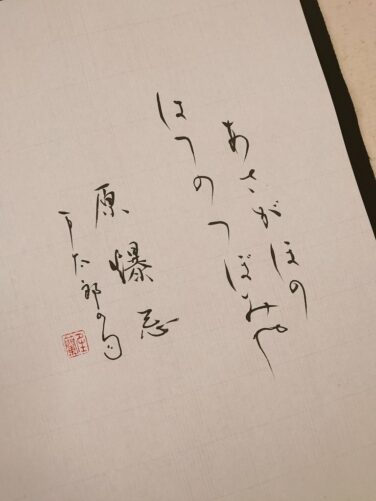 あさがほの
はつのつぼみや
原爆忌
万太郎の句